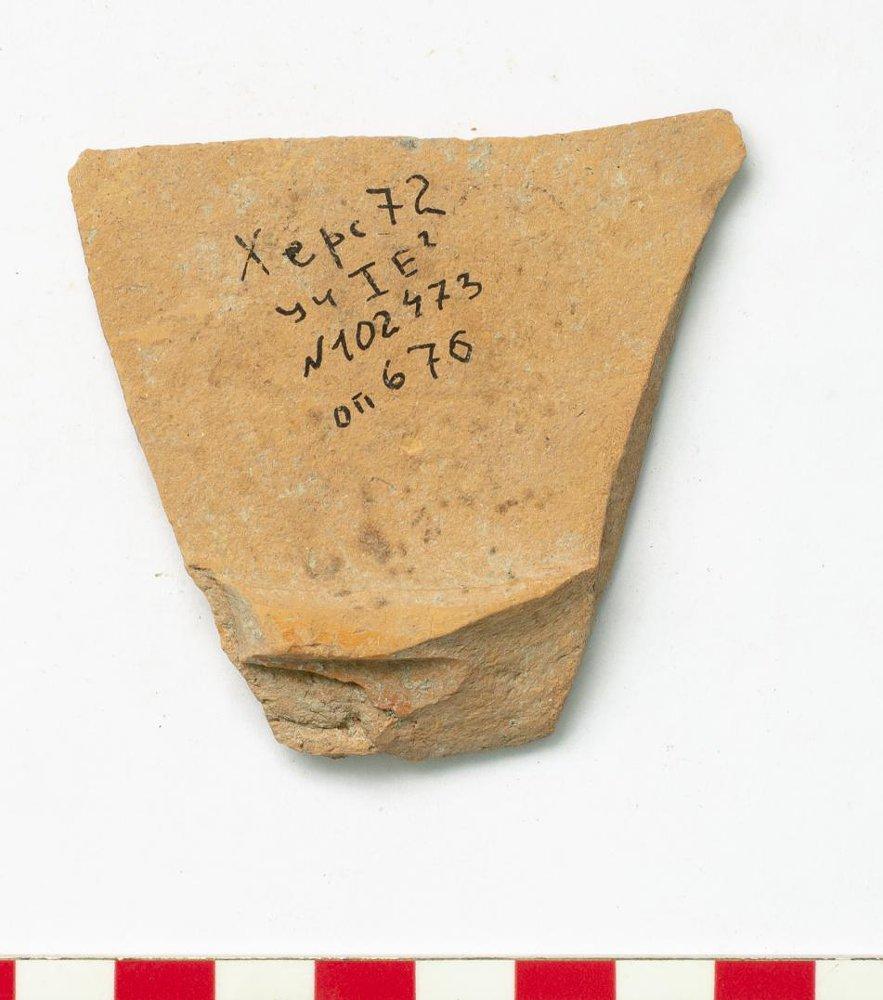 Херс 72
уч I Е²
N102473
оп 676